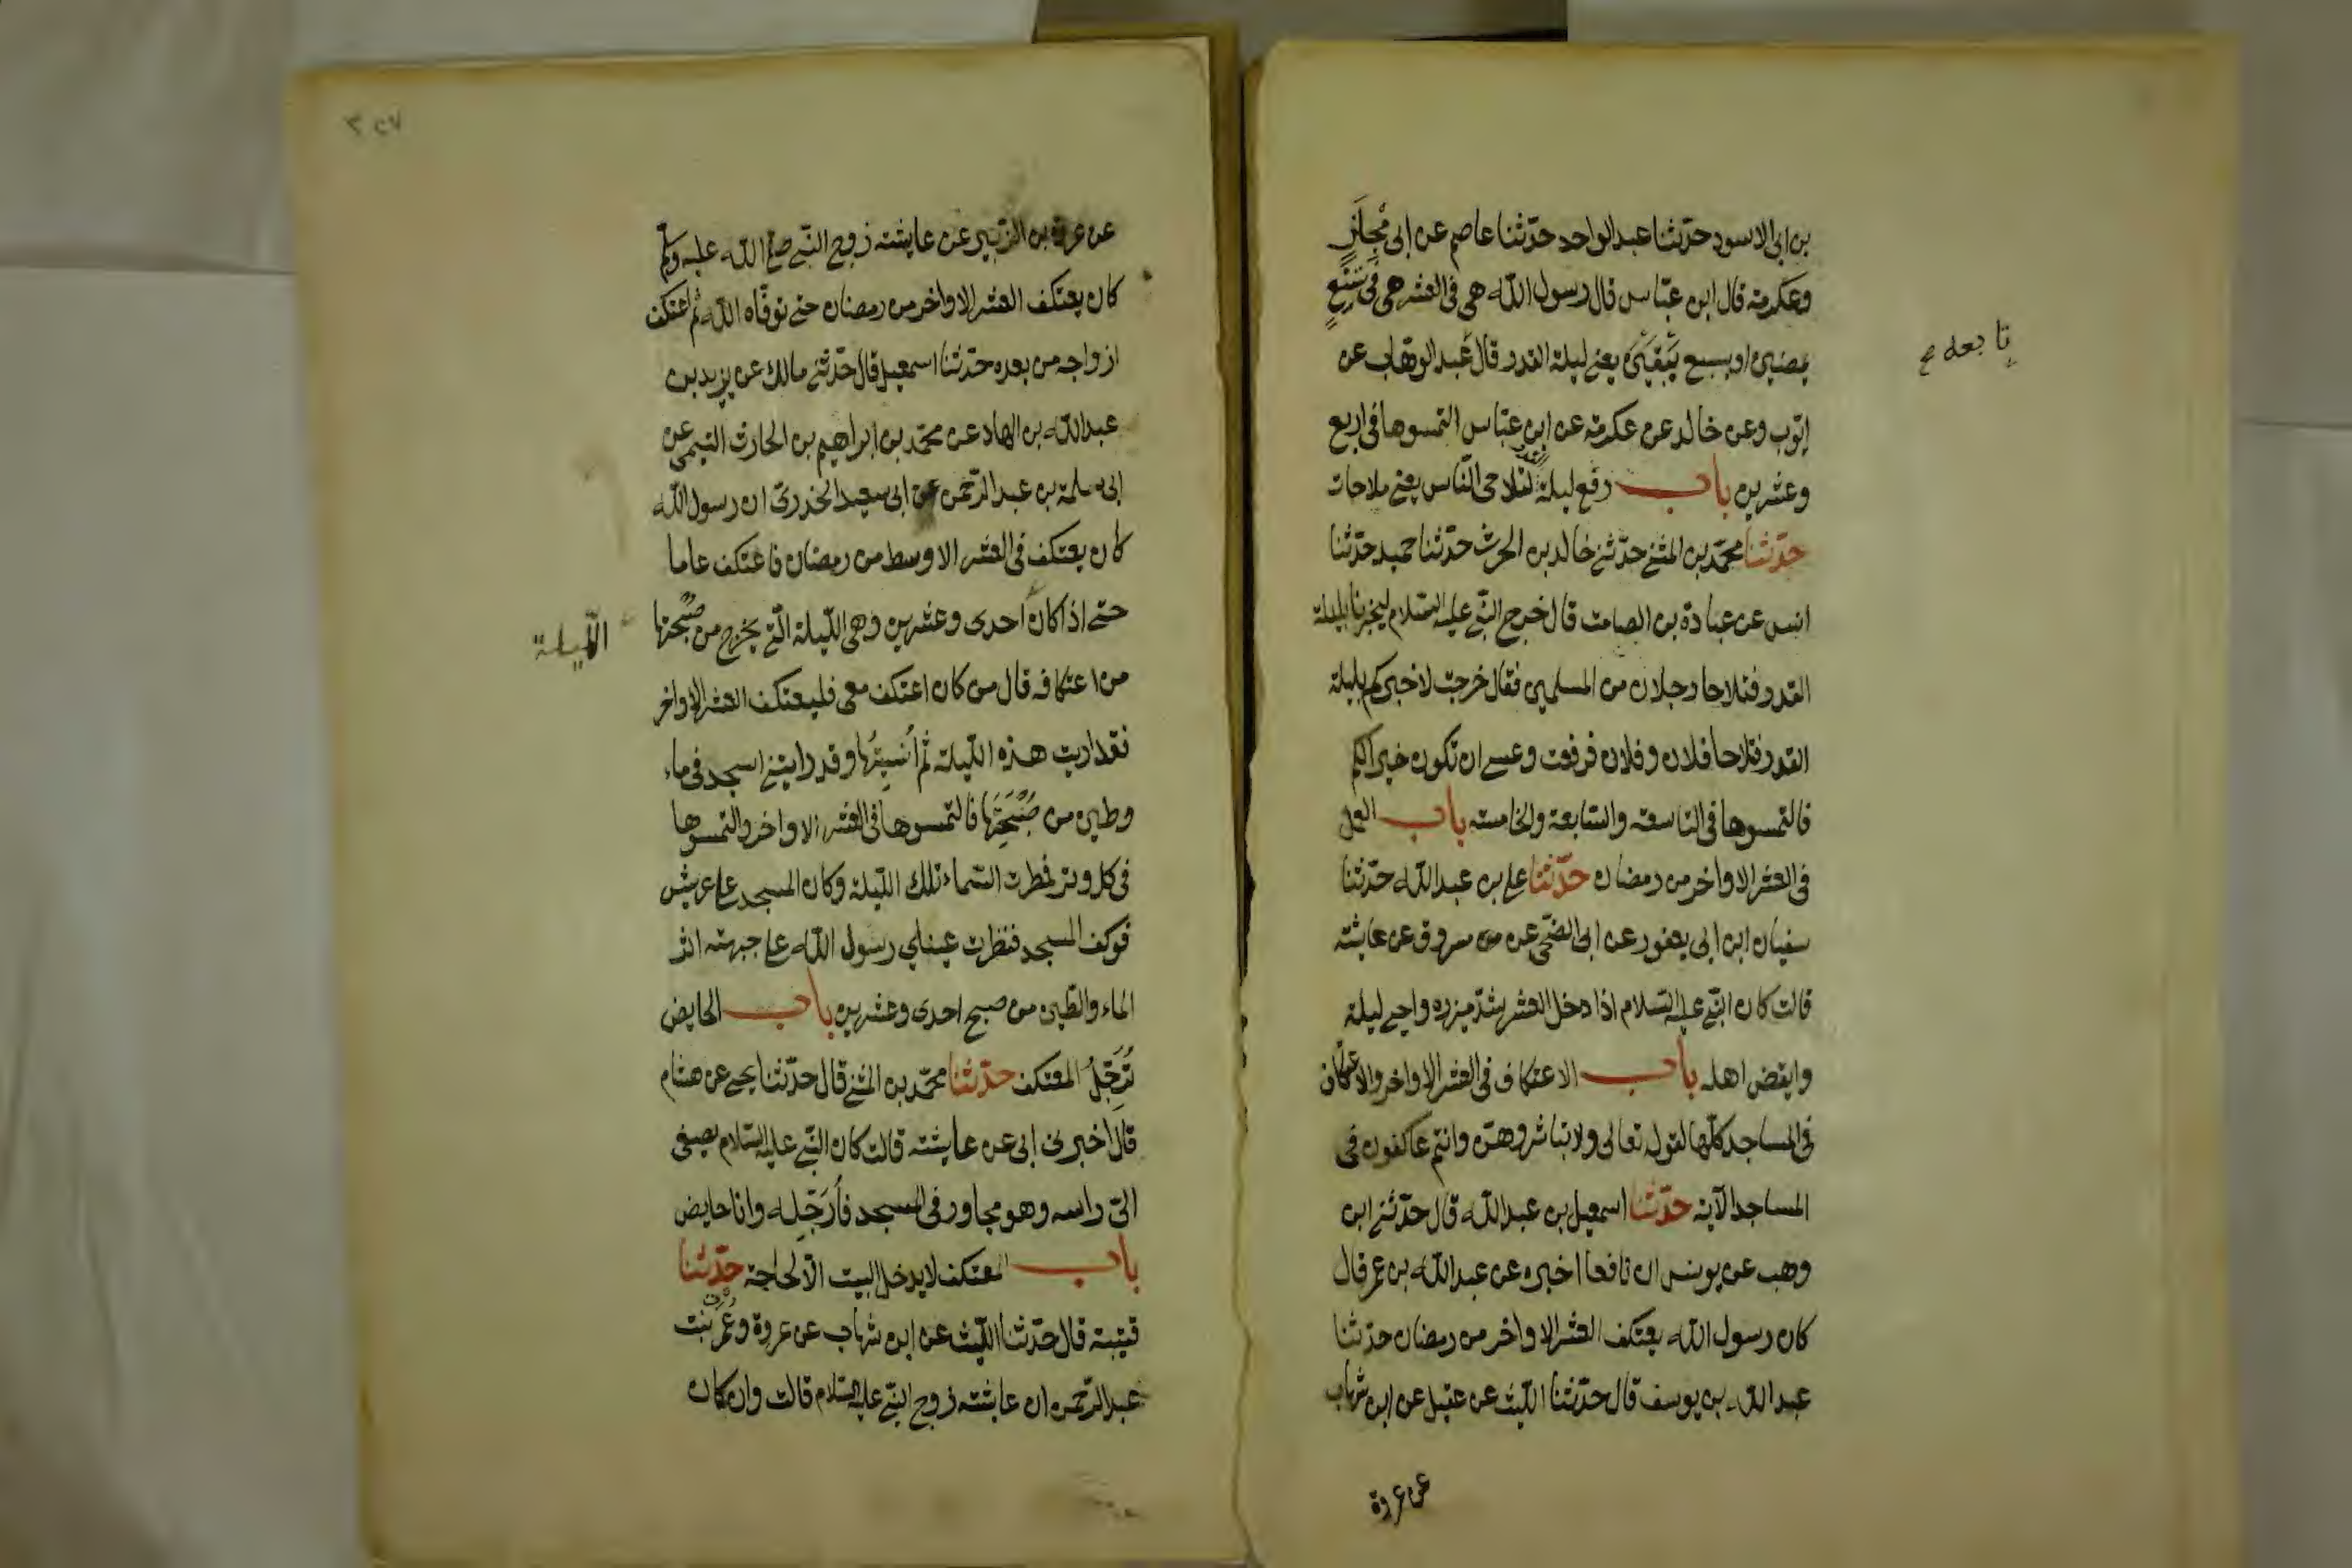 بن ابى الاسود حدّثنا عبد الواحد حدّثنا عاصم عن ابى مْجِلَزٍ
وعكرمة قال ابن عبّاس قال رسول اللّه هى فى العشر هى فى تسْعٍ
يمضين او بسبع يَبْقَيْنَ يعنى ليلة القدر قال عبد الوهّاب عن
تابعه
ايّوب وعن خالد عن عكرمة عن ابن عبّاس التمسوها فى اربع
وعشرين باب رفع ليلة القدر لتلاحى النّاس يعنى ملاحات
حدّثنا محمّد بن المثنى حدّثنى خالد بن الحرث حدّثنا حميد حدّثنا
انس عن عبادة بن الصامت قال خرج النّبى عليه السّلام ليخبرنا بليلة
القدر فتلاحا رجلان من المسلمين فقال خرجت لاخبركم بليلة
القدر فتلاحا فلان وفلان فرفعت وعسى ان تكون خيرا لكم
فالتمسوها فى التاسعة والسّابعة والخامسة باب العمل
فى العشر الاواخر من رمضان حدّثنا على بن عبد اللّه حدّثنا
سفيان ابن ابى يعفور عن ابى الضّحى عن مسروق عن عايشة
قالت كان النّبى عليه السّلام اذا دخل العشر شدّ ميزره واحيى ليلة
وايقض اهله باب الاعتكاف فى العشر الاواخر والاعتكاف
فى المساجد كلّها لقوله تعالى ولا تباشروهنّ وانتم عاكفون فى
المساجد الآية حدّثنا اسمعيل بن عبد اللّه قال حدّثنى ابن
وهب عن يونس ان نافعا اخبره عن عبد اللّه بن عمر قال
كان رسول اللّه يعتكف العشر الاواخر من رمضان حدّثنا
عبد اللّه بن يوسف قال حدّثنا اللّيث عن عقيل عن ابن شهاب
عن عروة
عن عروة بن الزّبير عن عايشة زوج النّبى صلى اللّه عليه وسلم
كان يعتكف العشر الاواخر من رمضان حتى توفّاه اللّه ثم اعتكف
ازواجه من بعده حدّثنا اسمعيل قال حدّثنى مالك عن يزيد بن
عبد اللّه بن الهاد عن محمّد بن ابراهيم بن الحارث التيمى عن
ابى سلمة بن عبد الرّحمن عن ابى سعيد الخدرىّ ان رسول اللّه
كان يعتكف فى العشر الاوسط من رمضان فاعتكف عاما
حتى اذا كان احدى وعشرين وهى اللّيلة الّتى يخرج من صُبْحتها
اللّيلة
من اعتكافه قال من كان اعتكف معى فليعتكف العشر الاواخر
فقد اريت هذه اللّيلة ثم اُنْسِيتُها وقد رايتنى اسجد فى ماء
وطين من صُبْحَتِها فالتمسوها فى العشر الاواخر والتمسوها
فى كل وتر فمطرت السّماء تلك اللّيلة وكان المسجد على عريش
فوكف المسجد فنظرت عيناى رسول اللّه على جبهته اثر
الماء والطّين من صبح احدى وعشرين باب الحايض
تُرَجِّلُ المعتكف حدّثنا محمّد بن المثنى قال حدّثنا يحيى عن هشام
قال اخبرنى ابى عن عايشة قالت كان النّبى عليه السّلام يصغى
الىّ راسه وهو مجاور فى المسجد فأُرَجِّله وانا حايض
باب المعتكف لا يدخل البيت الّا لحاجة حدّثنا
قتيبة قال حدّثنا اللّيث عن ابن شهاب عن عروة وعَمرة بنت
عبد الرّحمن ان عايشة زوج النّبى عليه السّلام قالت وان كان